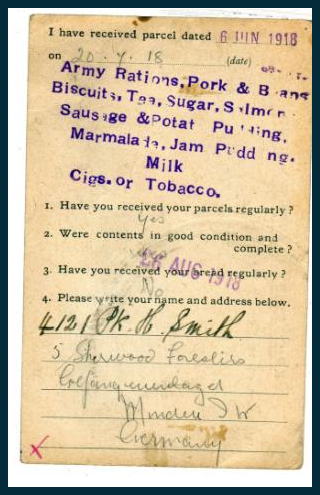 I have received parcel dated 6 JUN 1918
on 20.7.18 (date)
Army Rations, Pork & Beans
Biscuits, Tea, Sugar, Salmon
Sausage & Potat Pudding,
Marmalade, Jam Pudding.
Milk
Cigs. or Tobacco.
1. Have you received your parcels regularly?
Yes
2. Were contents in good condition and
complete?
26 AUG 1918
3. Have you received your bread regularly?
No
4. Please write your name and address below.
4121 Pte. H. Smith
5 Sherwood Foresters
Gefangenenlager
Minden I W
Germany
X